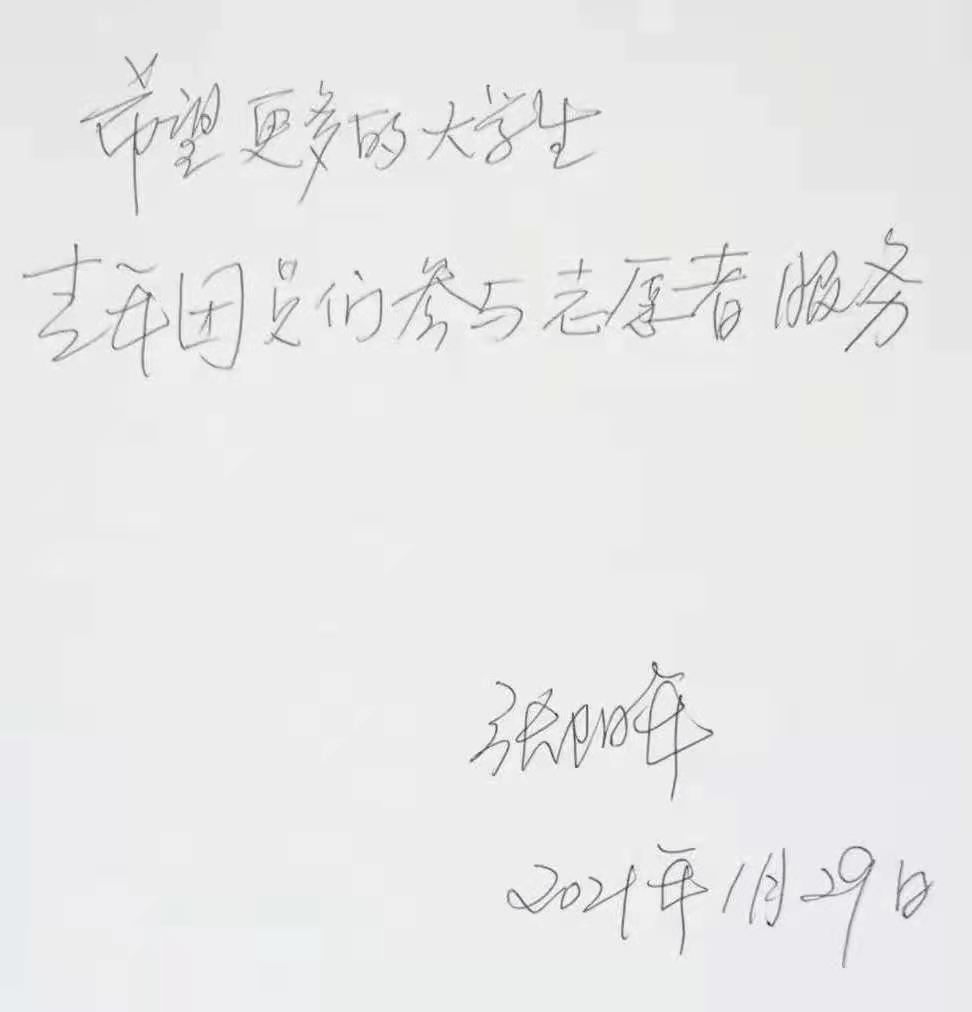 希望更多的大学生
青年团员们参与志愿者服务
张
2021年1月29日